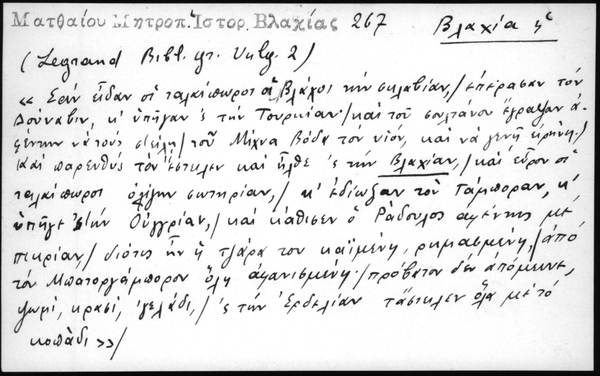 Ματθαίου Μητροπ. Ἱστορ. Βλαχίας 267 Βλαχία ἡ
(Legrand Bibl. gr. Vulg. 2)
« Σὰν εἶδαν οἱ ταλαίπωροι οἱ Βλάχοι τὴν σκλαβίαν,/ ἐπέρασαν τὸν
Δούναβιν, κ' ὑπῆγαν 'ς τὴν Τουρκίαν·/ καὶ τοῦ σουλτάνου ἔγραψαν ἀ-
φέντην νὰ τοὺς στείλῃ/ τοῦ Μίχνα Βόδα τὸν υἱόν, καὶ νὰ γενῇ εἰρήνη./
Καὶ παρευθὺς τὸν ἔστειλεν καὶ ἦλθε 'ς τὴν Βλαχίαν,/ καὶ εὗρον οἱ
ταλαίπωροι ὀλίγην σωτηρίαν,/ κ' ἐδίωξαν τὸν Γάμπορον, κ'
ὑπῆγε 'ς τὴν Οὐγγρίαν,/ καὶ κάθισεν ὁ Ράδουλος αφέντης μὲ
πικρίαν,/ διότις ἦν ἡ τζάρα του καϊμένη, ρημασμένη,/ ἀπὸ
τὸν Μπατοργάμπορον ὅλη ἀφανισμένη·/ πρόβατον δὲν ἀπόμεινε,
ψωμί, κρασί, 'γελάδι,/ 'ς τὴν Ἐρδελίαν τἄστειλεν ὅλα μὲ τὸ
κοπάδι »/